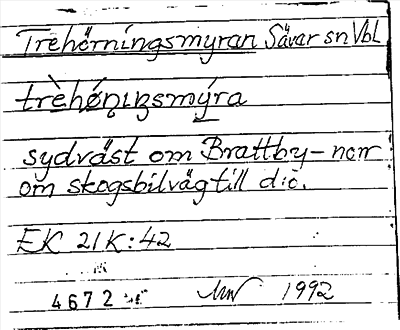 Trehörningsmyran Sävar sn Vbl
trèhø̨ṇiṇsmýra
sydväst om Brattby-norr
om skogsbilväg till d:o.
EK 21K:42
4672 1992